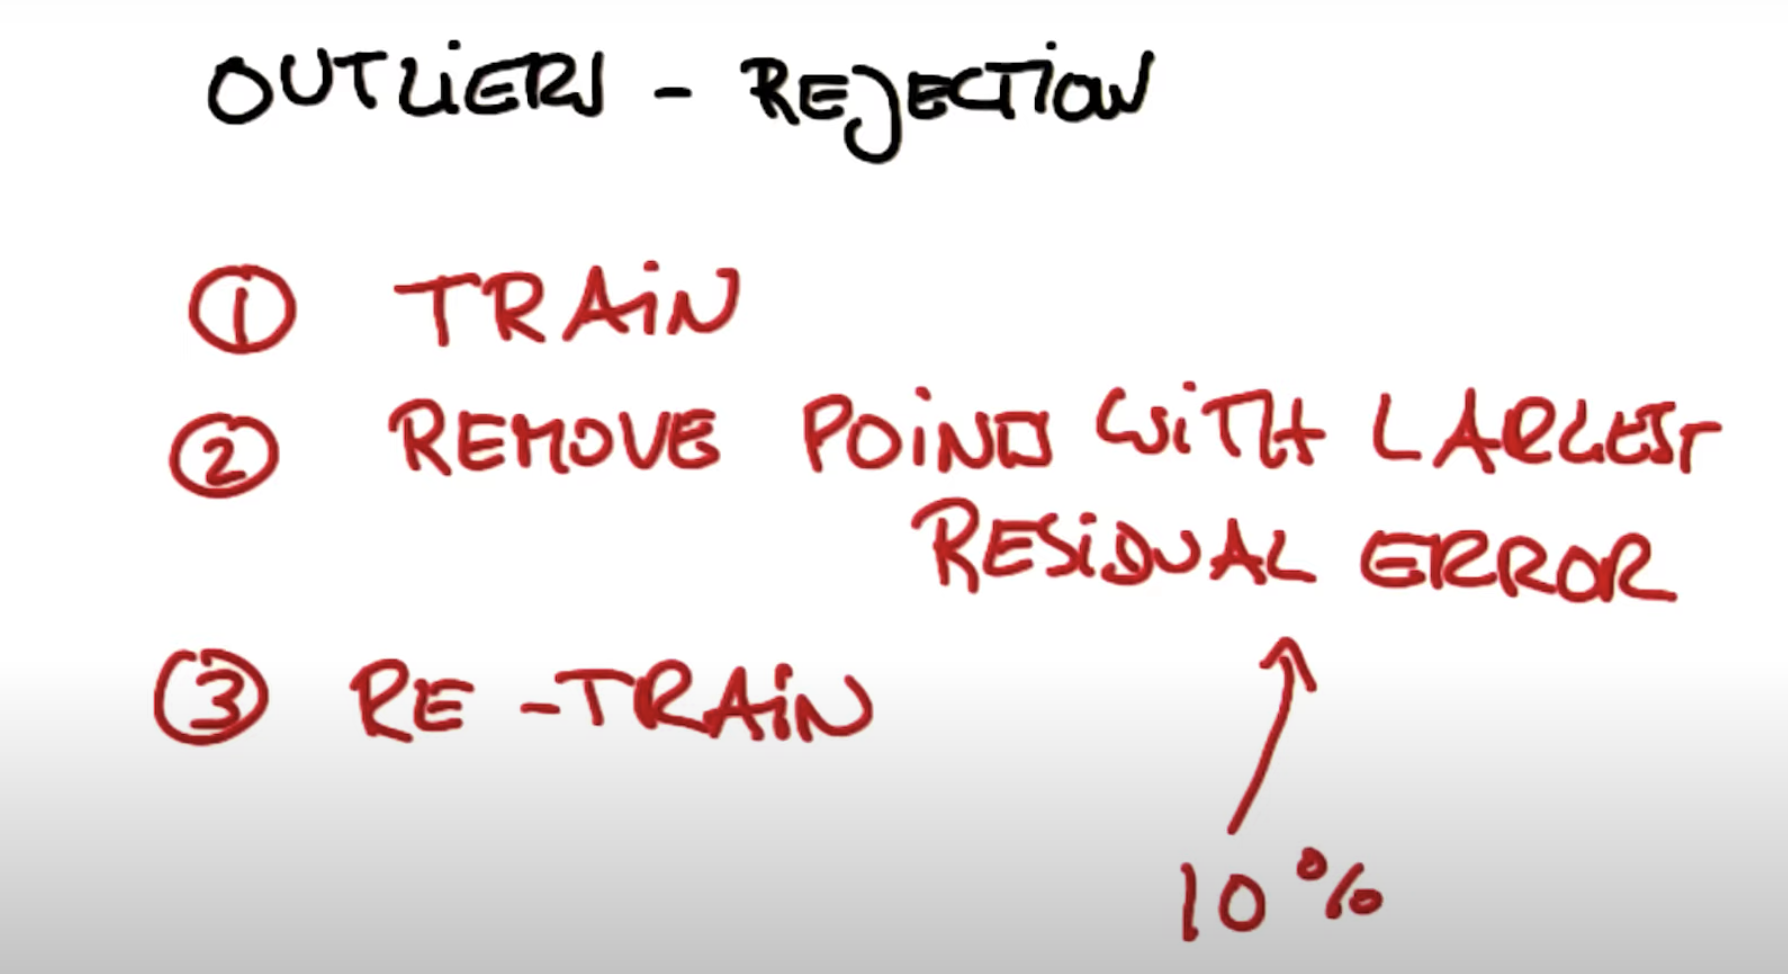 OUTLIERS - REJECTION
① TRAIN
② REMOVE POINTS WITH LARGEST
RESIDUAL ERROR
③ RE-TRAIN
10%